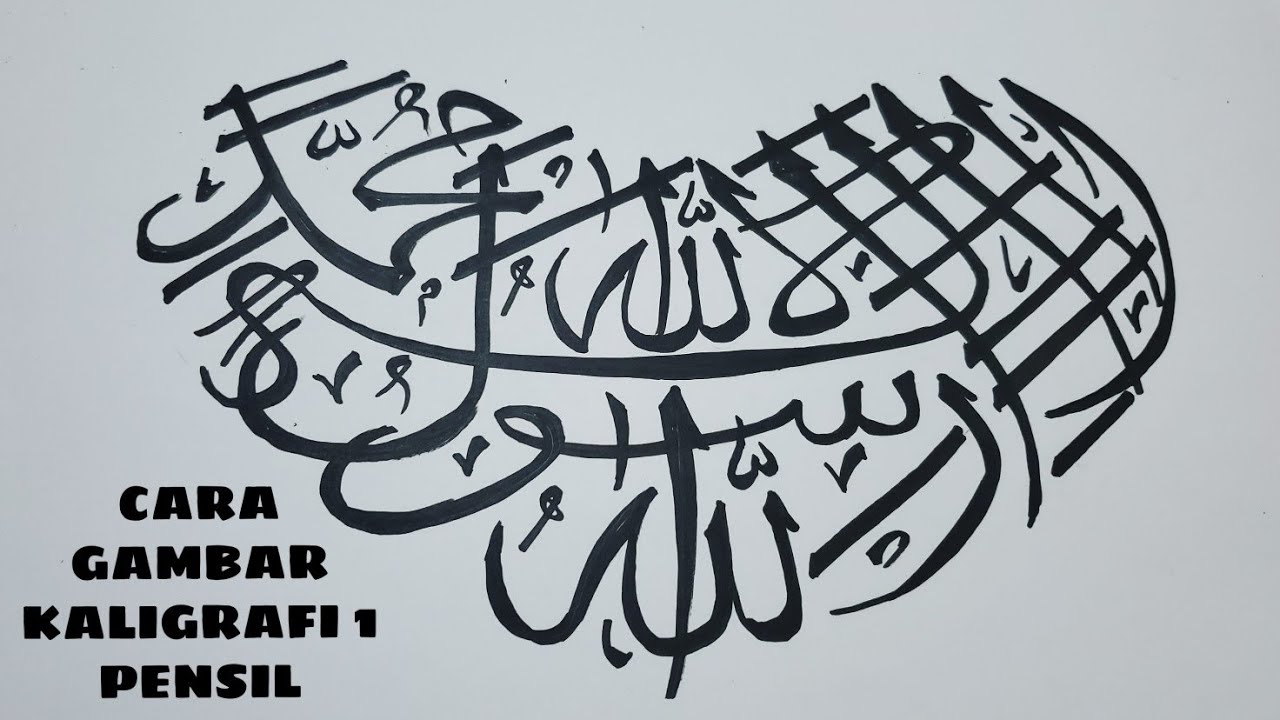 لا إله إلا الله
محمد
رسول
الله
CARA
GAMBAR
KALIGRAFI 1
PENSIL